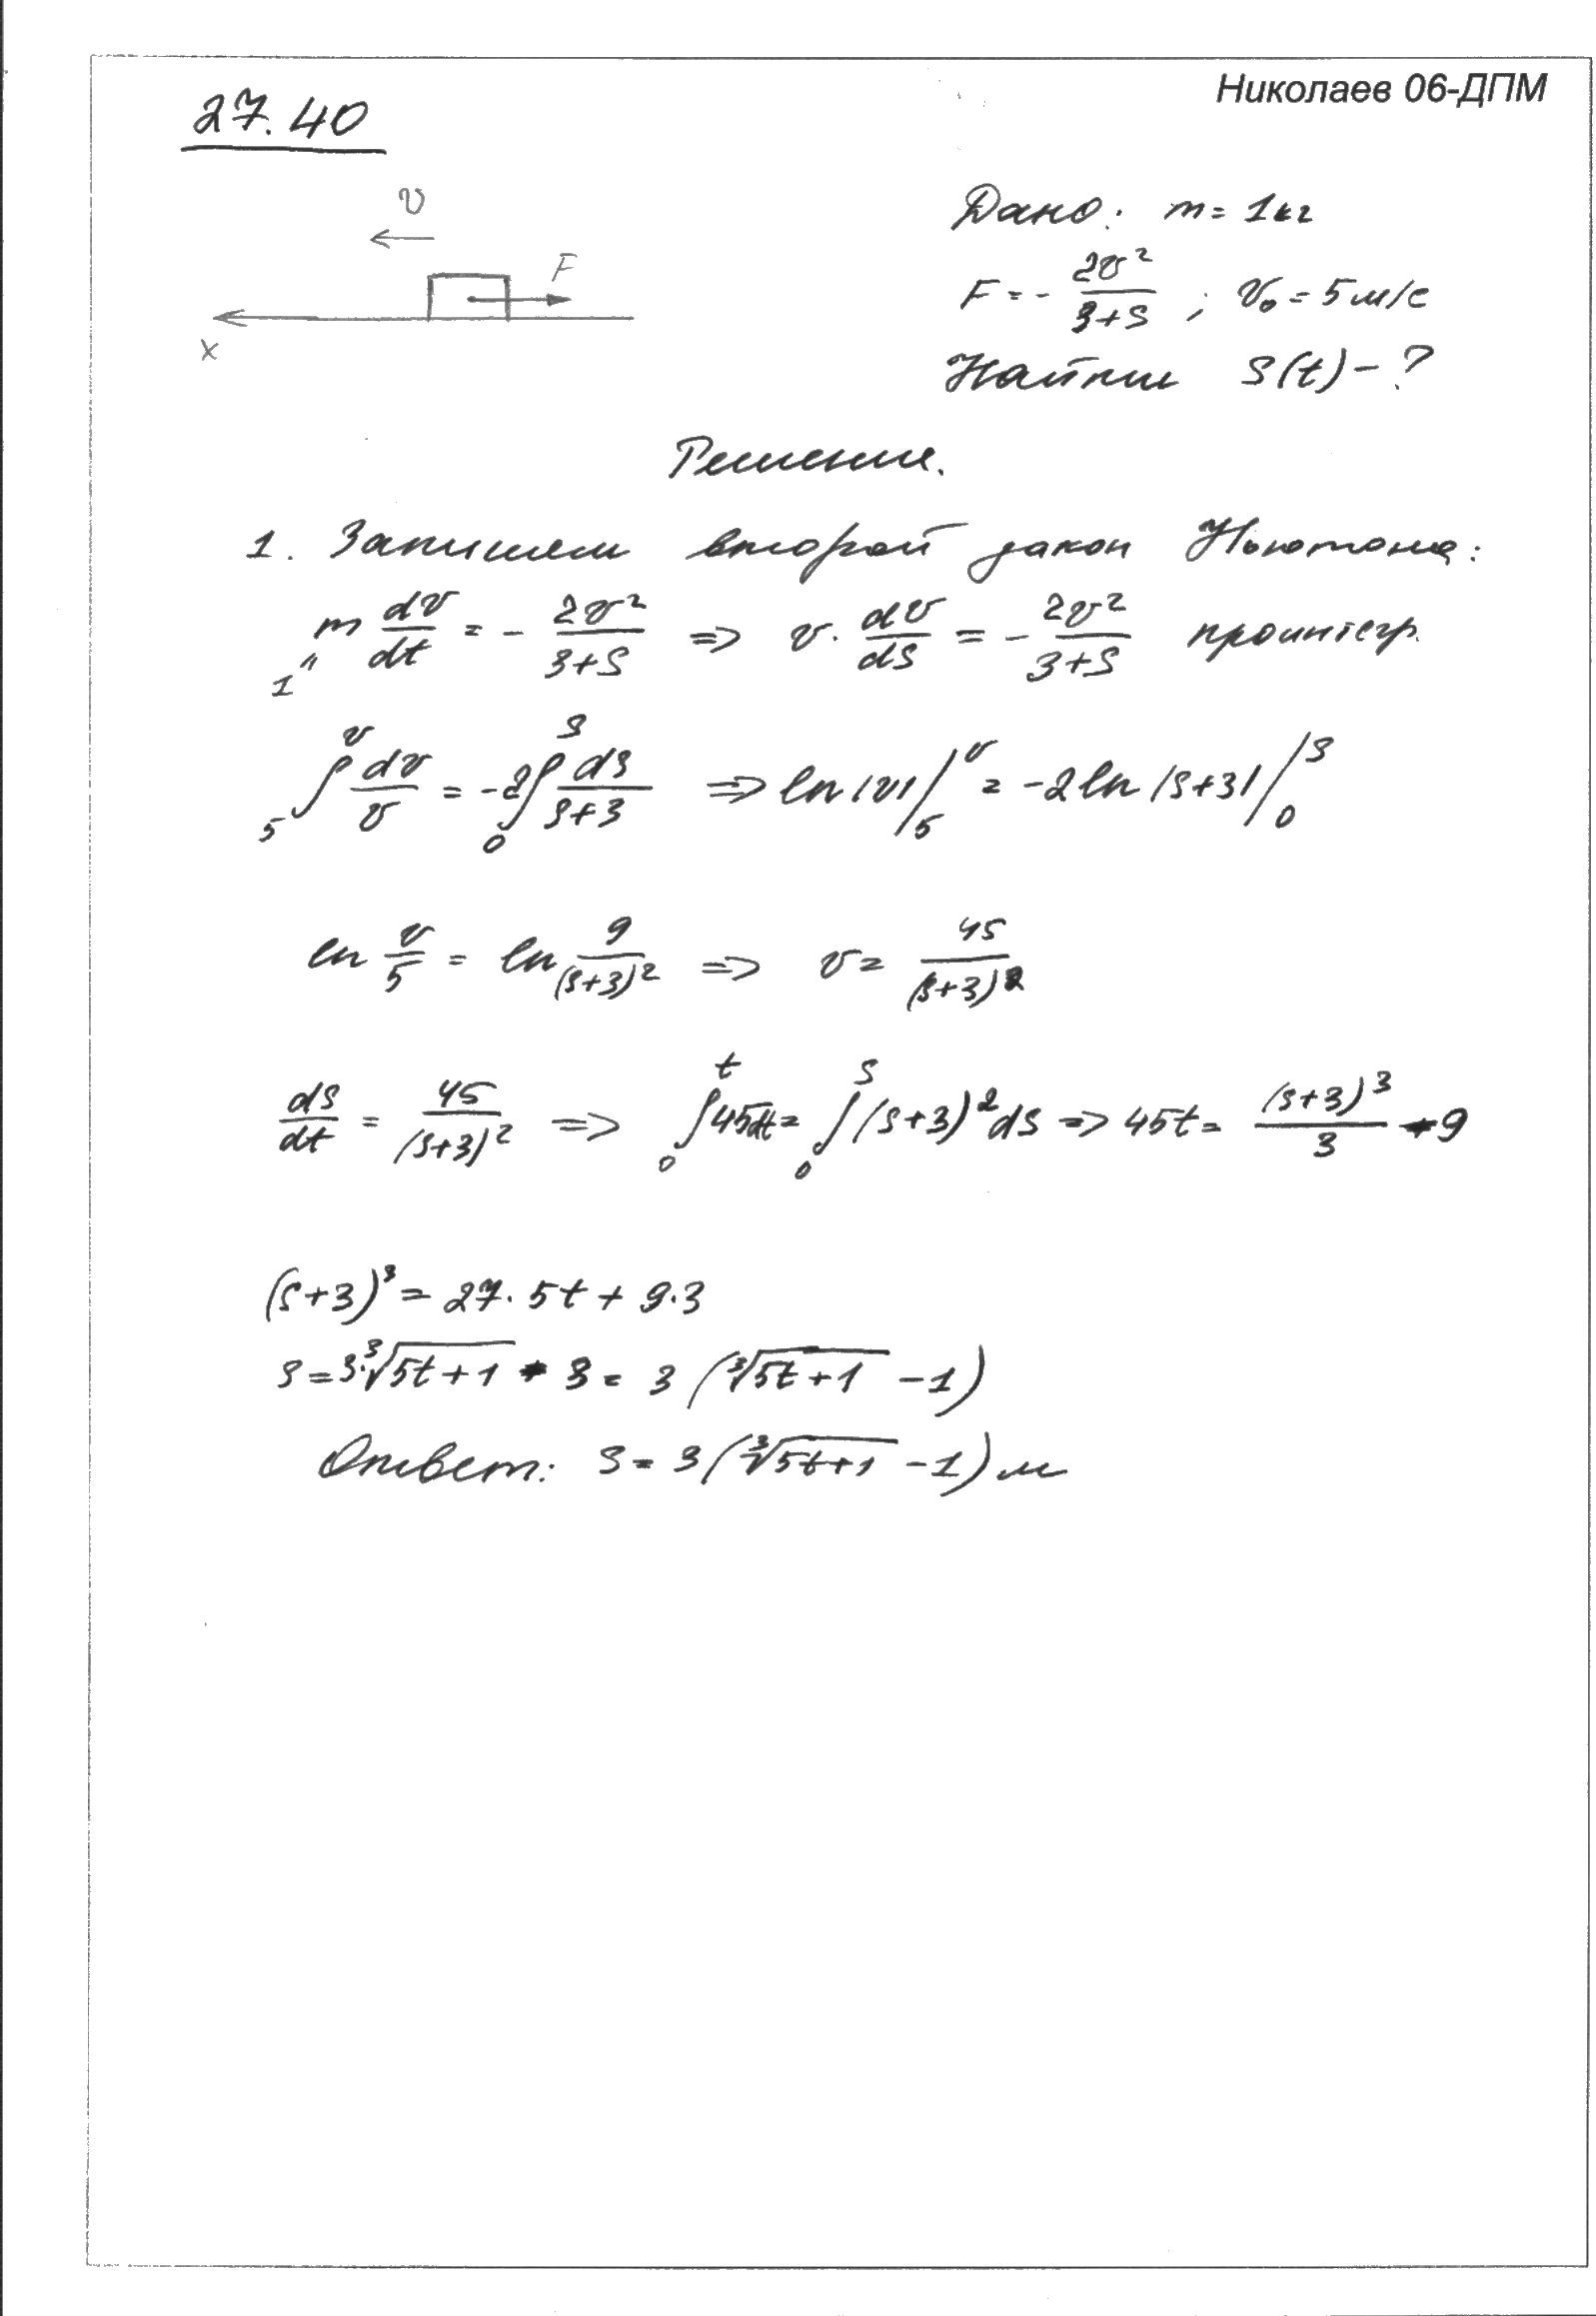 Николаев 06-ДПМ
27.40
v
F
x
Дано: m = 1кг
F = - 2v²/(3+S) ; v₀ = 5 м/с
Найти S(t) - ?
Решение.
1. Запишем второй закон Ньютона:
m dv/dt = - 2v²/(3+S) => v · dv/dS = - 2v²/(3+S) проинтегр.
"
1
∫₅ᵛ dv/v = -2∫₀ˢ dS/(S+3) => ln|v| |₅ᵛ = -2ln|S+3| |₀ˢ
ln v/5 = ln 9/(S+3)² => v = 45/(S+3)²
dS/dt = 45/(S+3)² => ∫₀ᵗ 45dt = ∫₀ˢ (S+3)² dS => 45t = (S+3)³/3 - 9
(S+3)³ = 27 · 5t + 9·3
S = 3·∛(5t+1) - 3 = 3 (∛(5t+1) - 1)
Ответ: S = 3(∛(5t+1) - 1) м